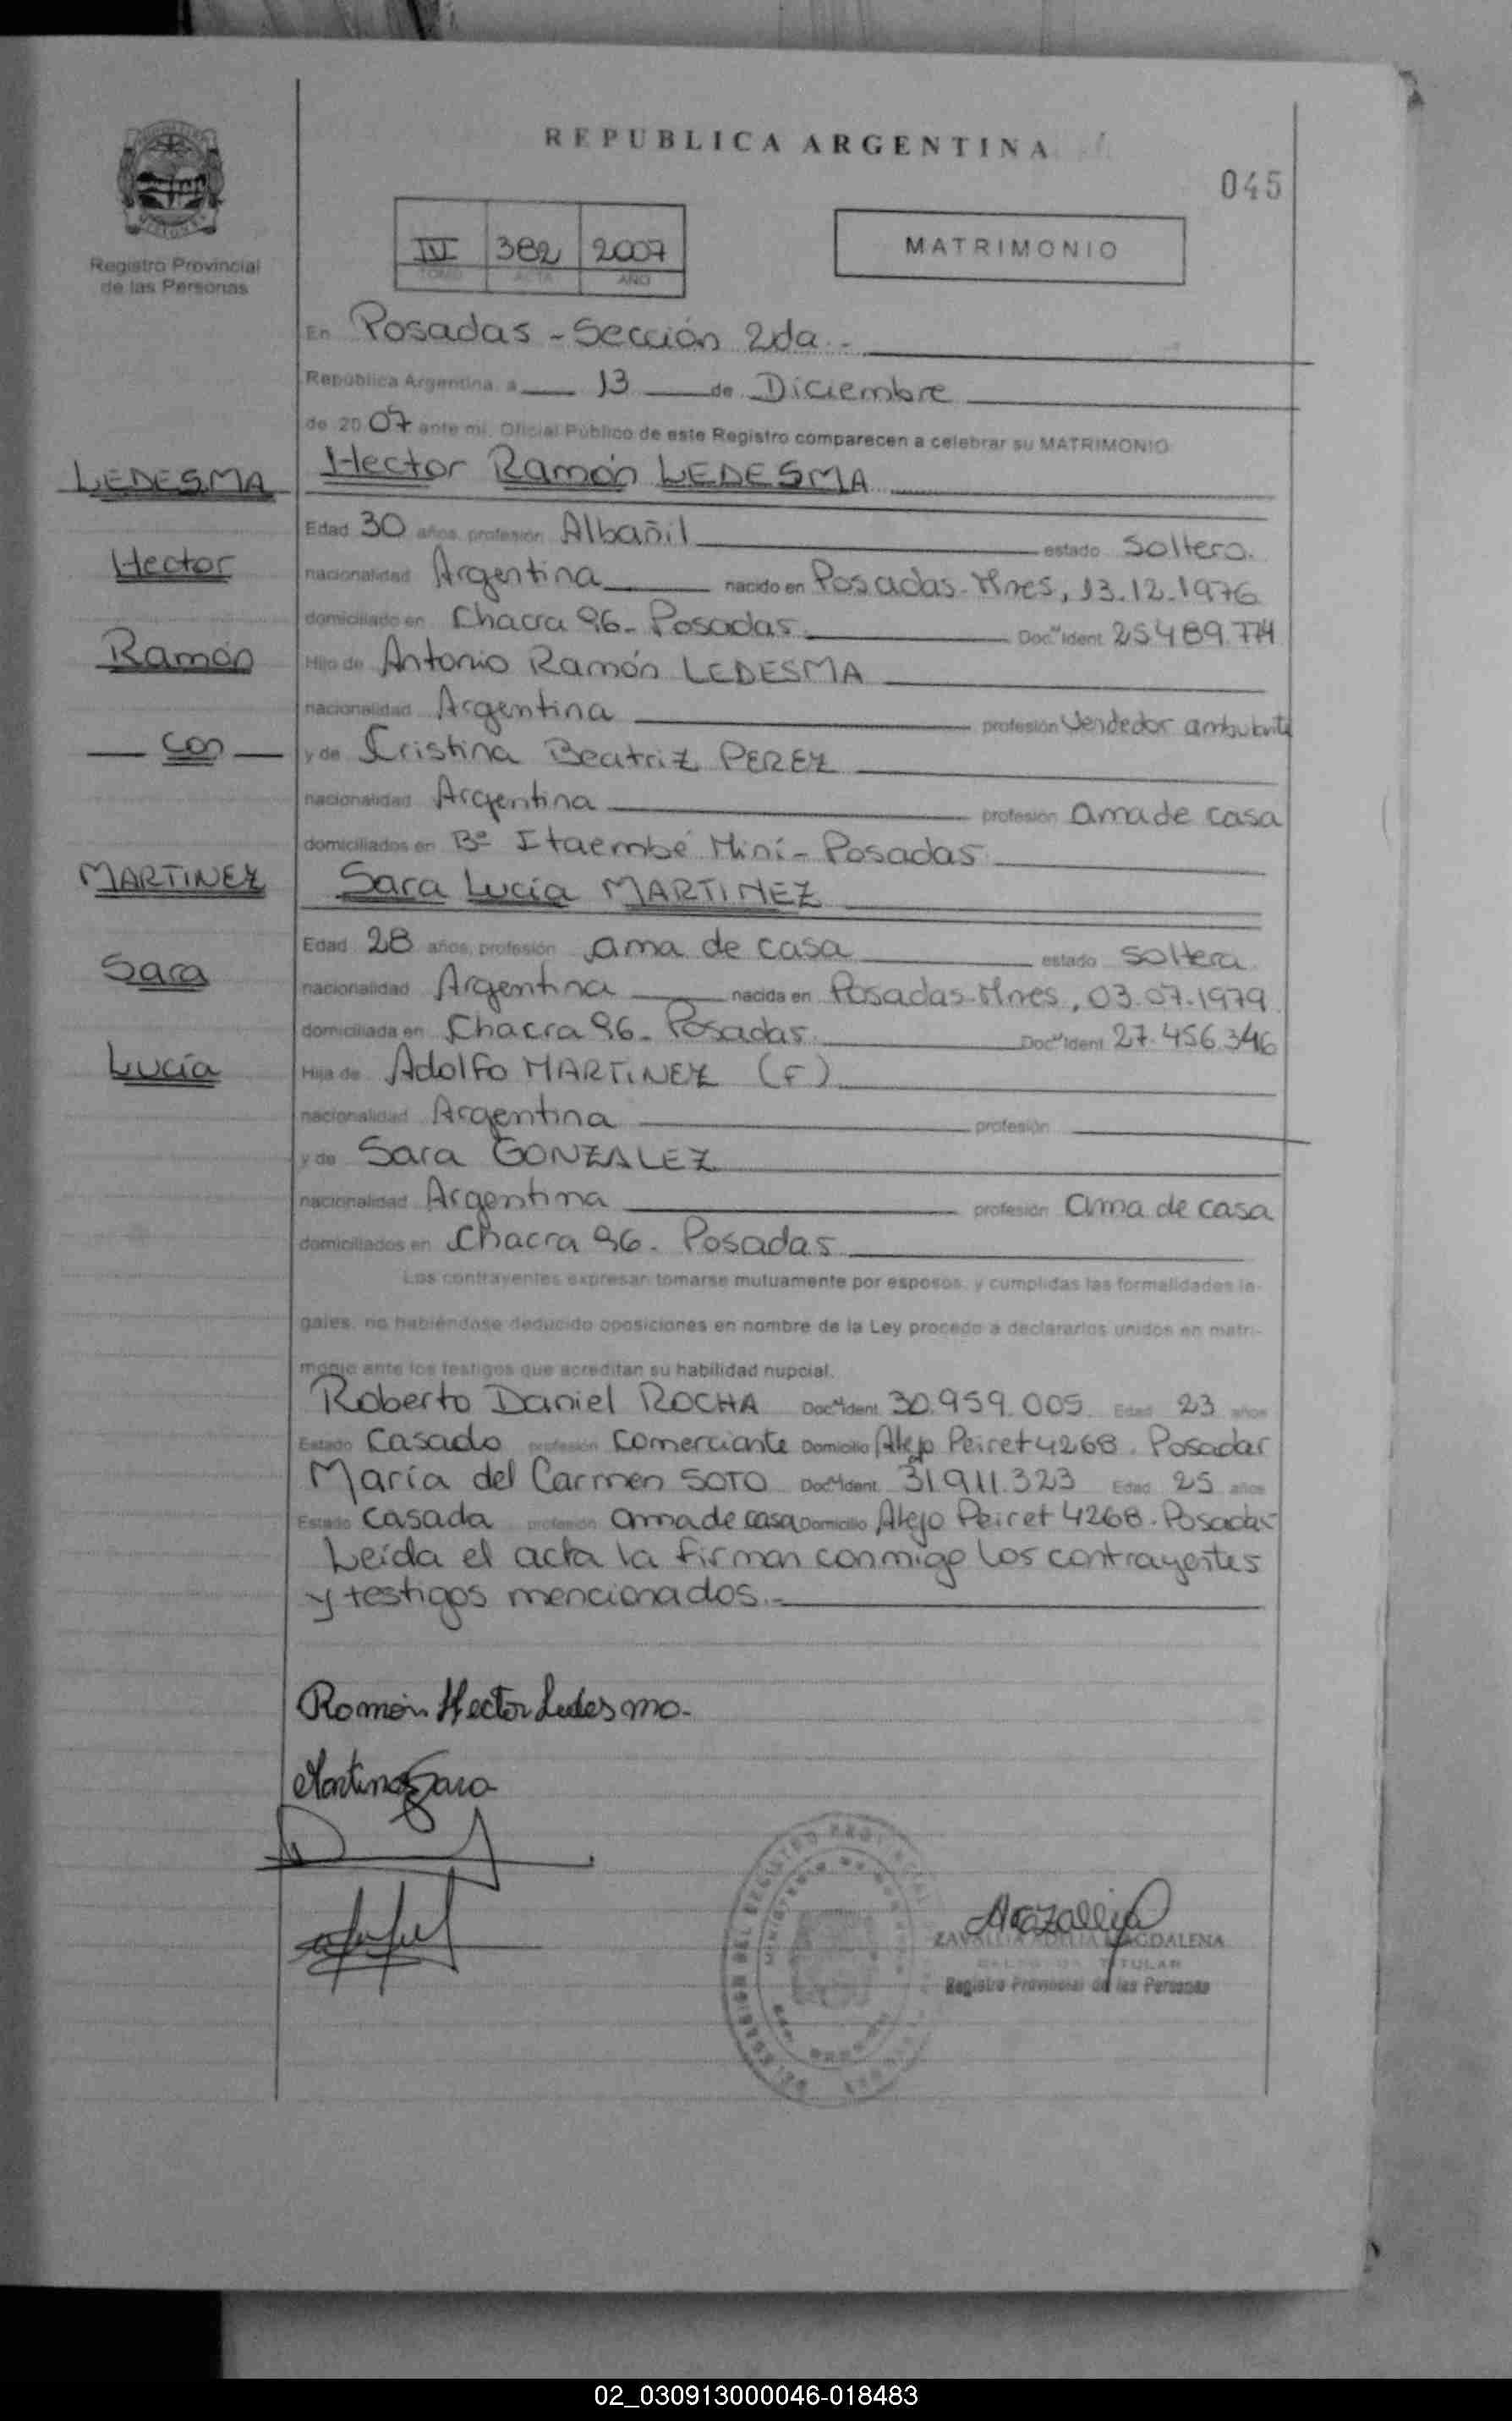 REPUBLICA ARGENTINA
045
Registro Provincial
de las Personas
IV 382 2007
TOMO ACTA AÑO
MATRIMONIO
En Posadas - Sección 2da.-
República Argentina a 13 de Diciembre
de 2007 ante mi, Oficial Público de este Registro comparecen a celebrar su MATRIMONIO
LEDESMA
Hector Ramón LEDESMA
Edad 30 años, profesión Albañil estado Soltero.
Hector
nacionalidad Argentina nacido en Posadas-Mnes, 13.12.1976
domiciliado en Chacra 96- Posadas Doc. Ident. 25.489.774
Ramón
Hijo de Antonio Ramón LEDESMA
nacionalidad Argentina profesión Vendedor ambulante
con
y de Cristina Beatriz PEREZ
nacionalidad Argentina profesión ama de casa
domiciliados en Bº Itaembé Miní- Posadas
MARTINEZ
Sara Lucía MARTINEZ
Edad 28 años, profesión ama de casa estado soltera
Sara
nacionalidad Argentina nacida en Posadas-Mnes, 03.07.1979
domiciliada en Chacra 96- Posadas. Doc. Ident. 27.456.346
Lucía
Hija de Adolfo MARTINEZ (F)
nacionalidad Argentina profesión
y de Sara GONZALEZ
nacionalidad Argentina profesión ama de casa
domiciliados en Chacra 96. Posadas
Los contrayentes expresan tomarse mutuamente por esposos, y cumplidas las formalidades le-
gales, no habiéndose deducido oposiciones en nombre de la Ley procedo a declararlos unidos en matri-
monio ante los testigos que acreditan su habilidad nupcial.
Roberto Daniel ROCHA Doc. Ident. 30.959.005 Edad 23 años
Estado Casado profesión Comerciante Domicilio Alejo Peiret 4268. Posadas
María del Carmen SOTO Doc. Ident. 31.911.323 Edad 25 años
Estado Casada profesión ama de casa Domicilio Alejo Peiret 4268. Posadas
Leída el acta la firman conmigo los contrayentes
y testigos mencionados.-
Ramón Hector Ledesma.
Martinez Sara
ZAVALLIA ADELIA MAGDALENA
TITULAR
Registro Provincial de las Personas
02_030913000046-018483